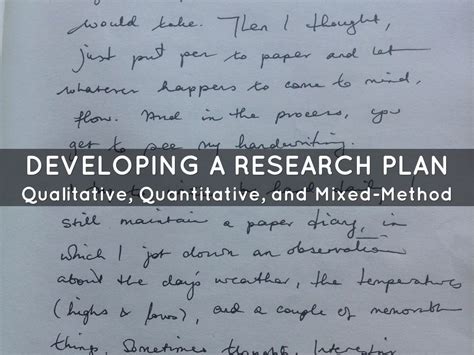 would take. Then I thought,
just put pen to paper and let
whatever happens to come to mind,
flow. And in the process, you
get to see my handwriting.
DEVELOPING A RESEARCH PLAN
Qualitative, Quantitative, and Mixed-Method
still maintain a paper diary, in
which I jot down an observation
about the day's weather, the temperatures
(highs & lows), and a couple of memorable
things. Sometimes thoughts. Interesting